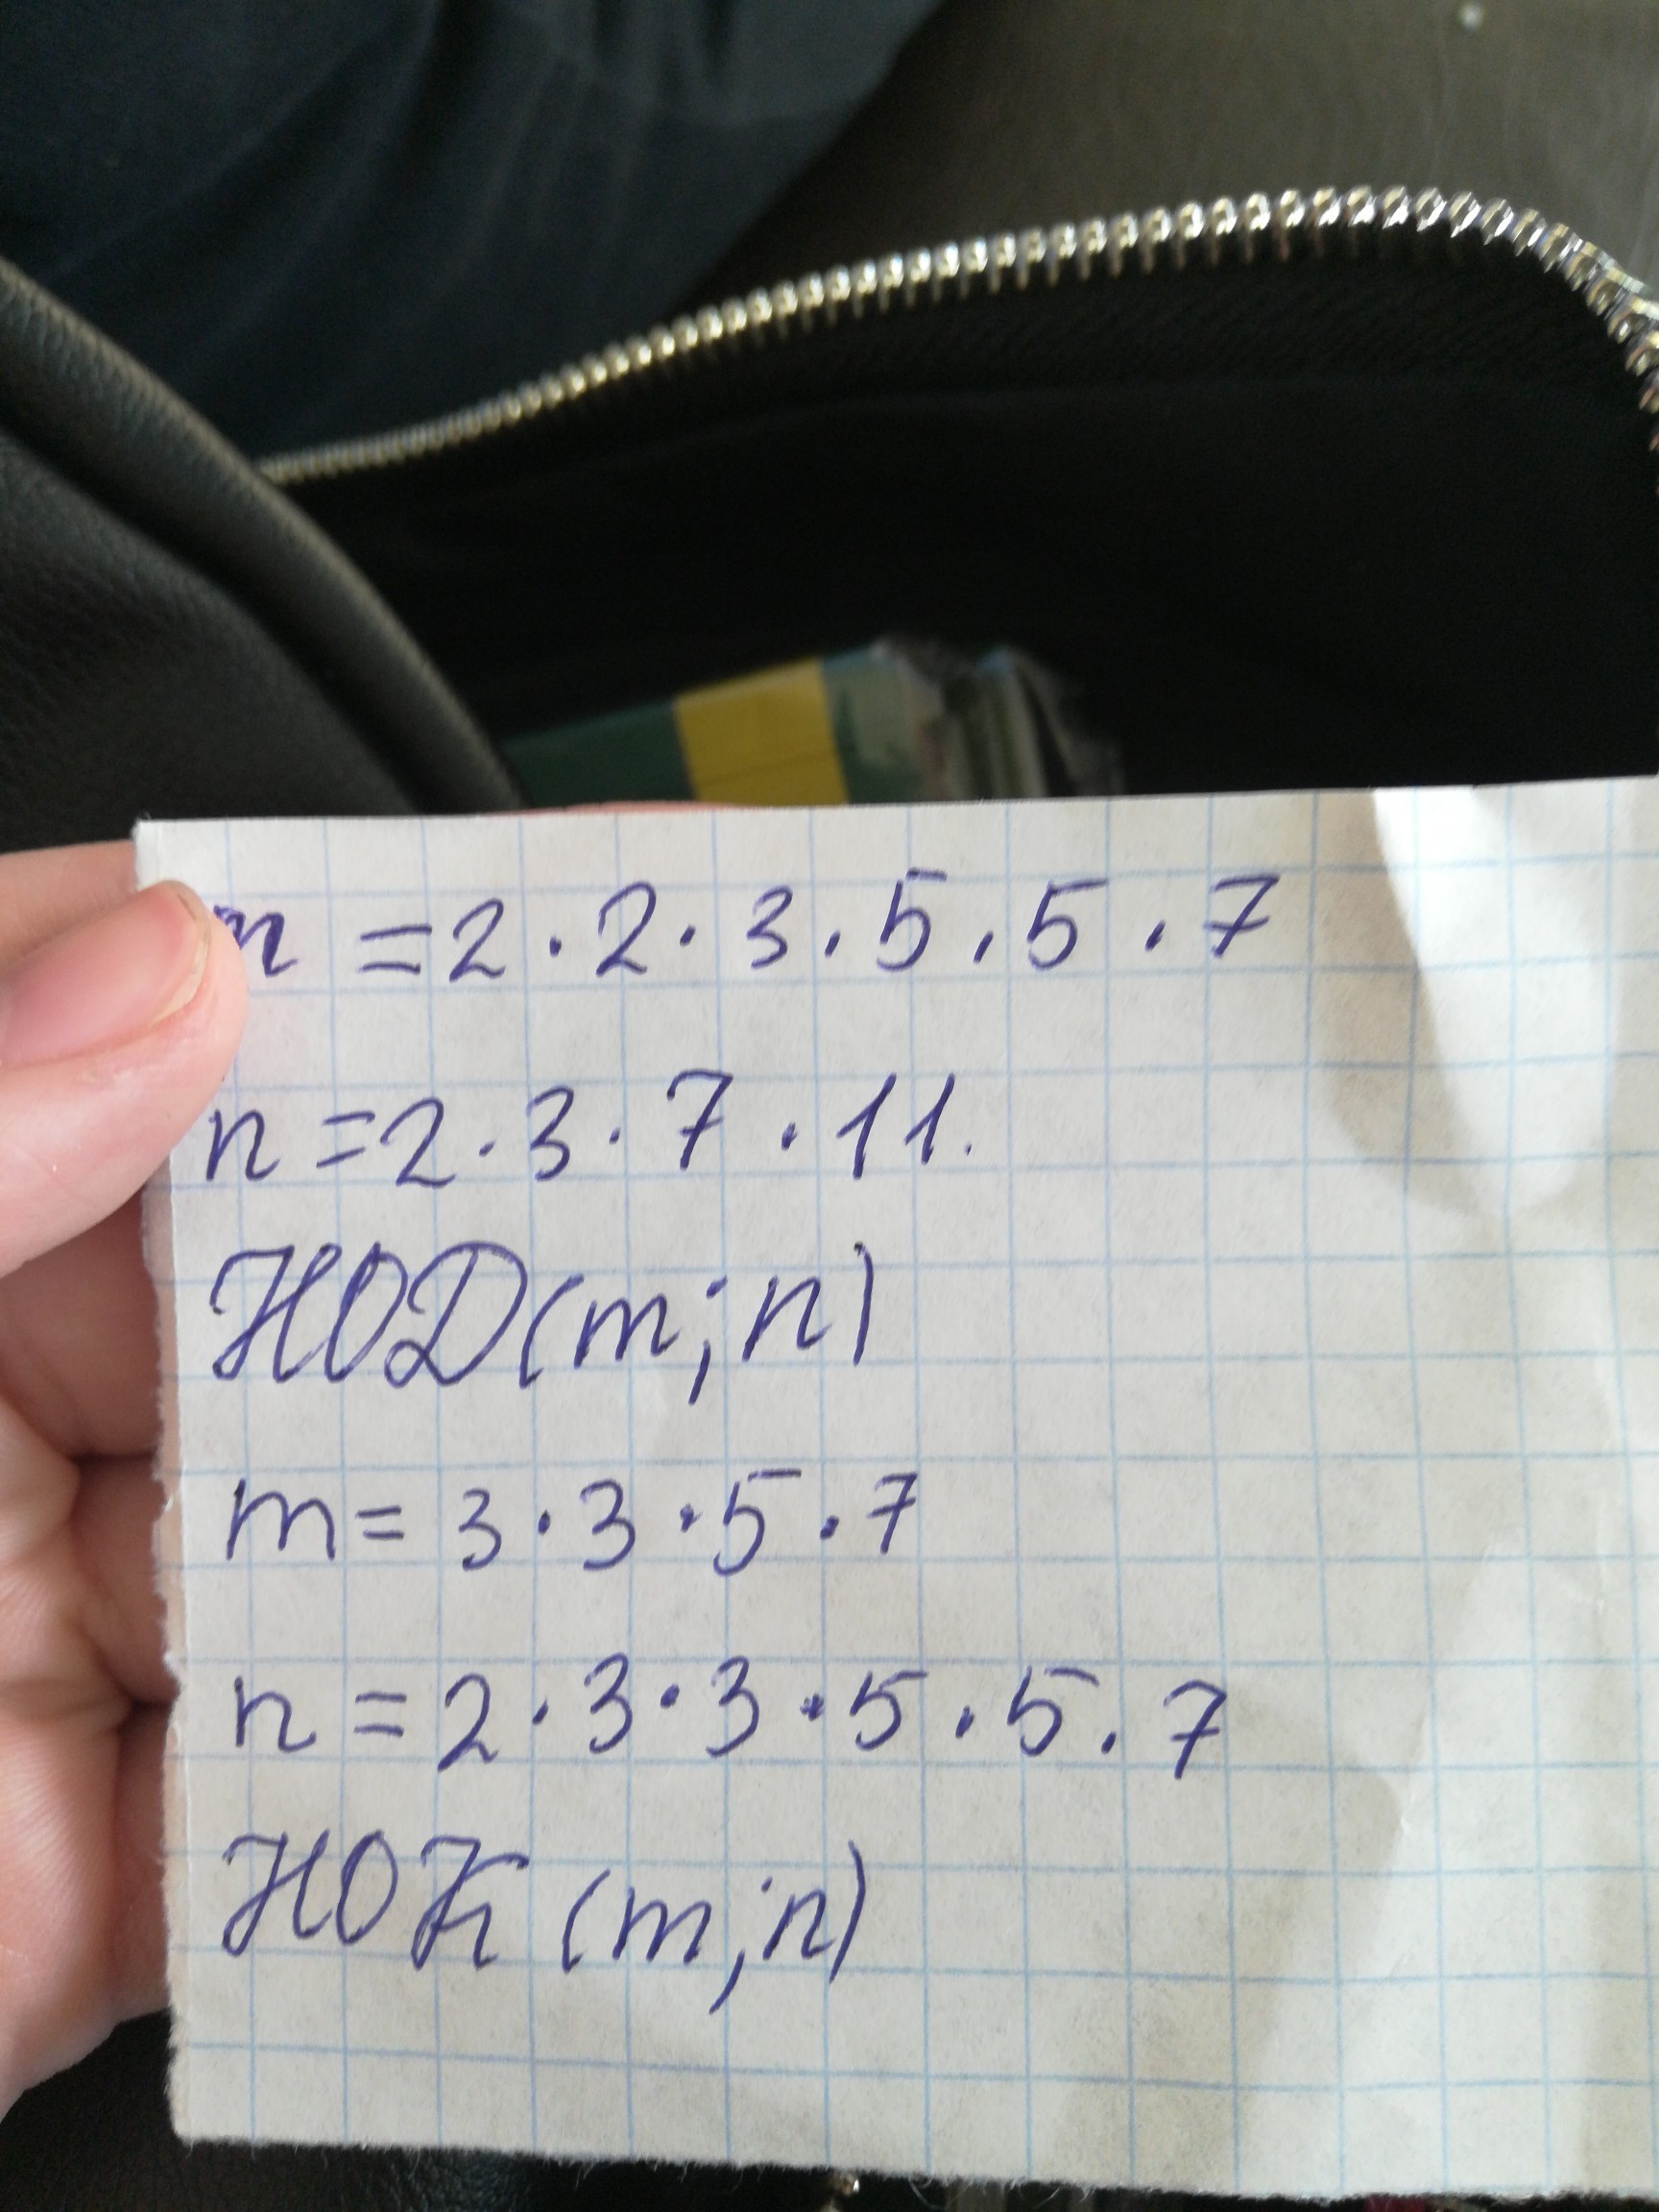 m = 2 · 2 · 3 · 5 · 5 · 7
n = 2 · 3 · 7 · 11.
НОД (m; n)
m = 3 · 3 · 5 · 7
n = 2 · 3 · 3 · 5 · 5 · 7
НОК (m; n)